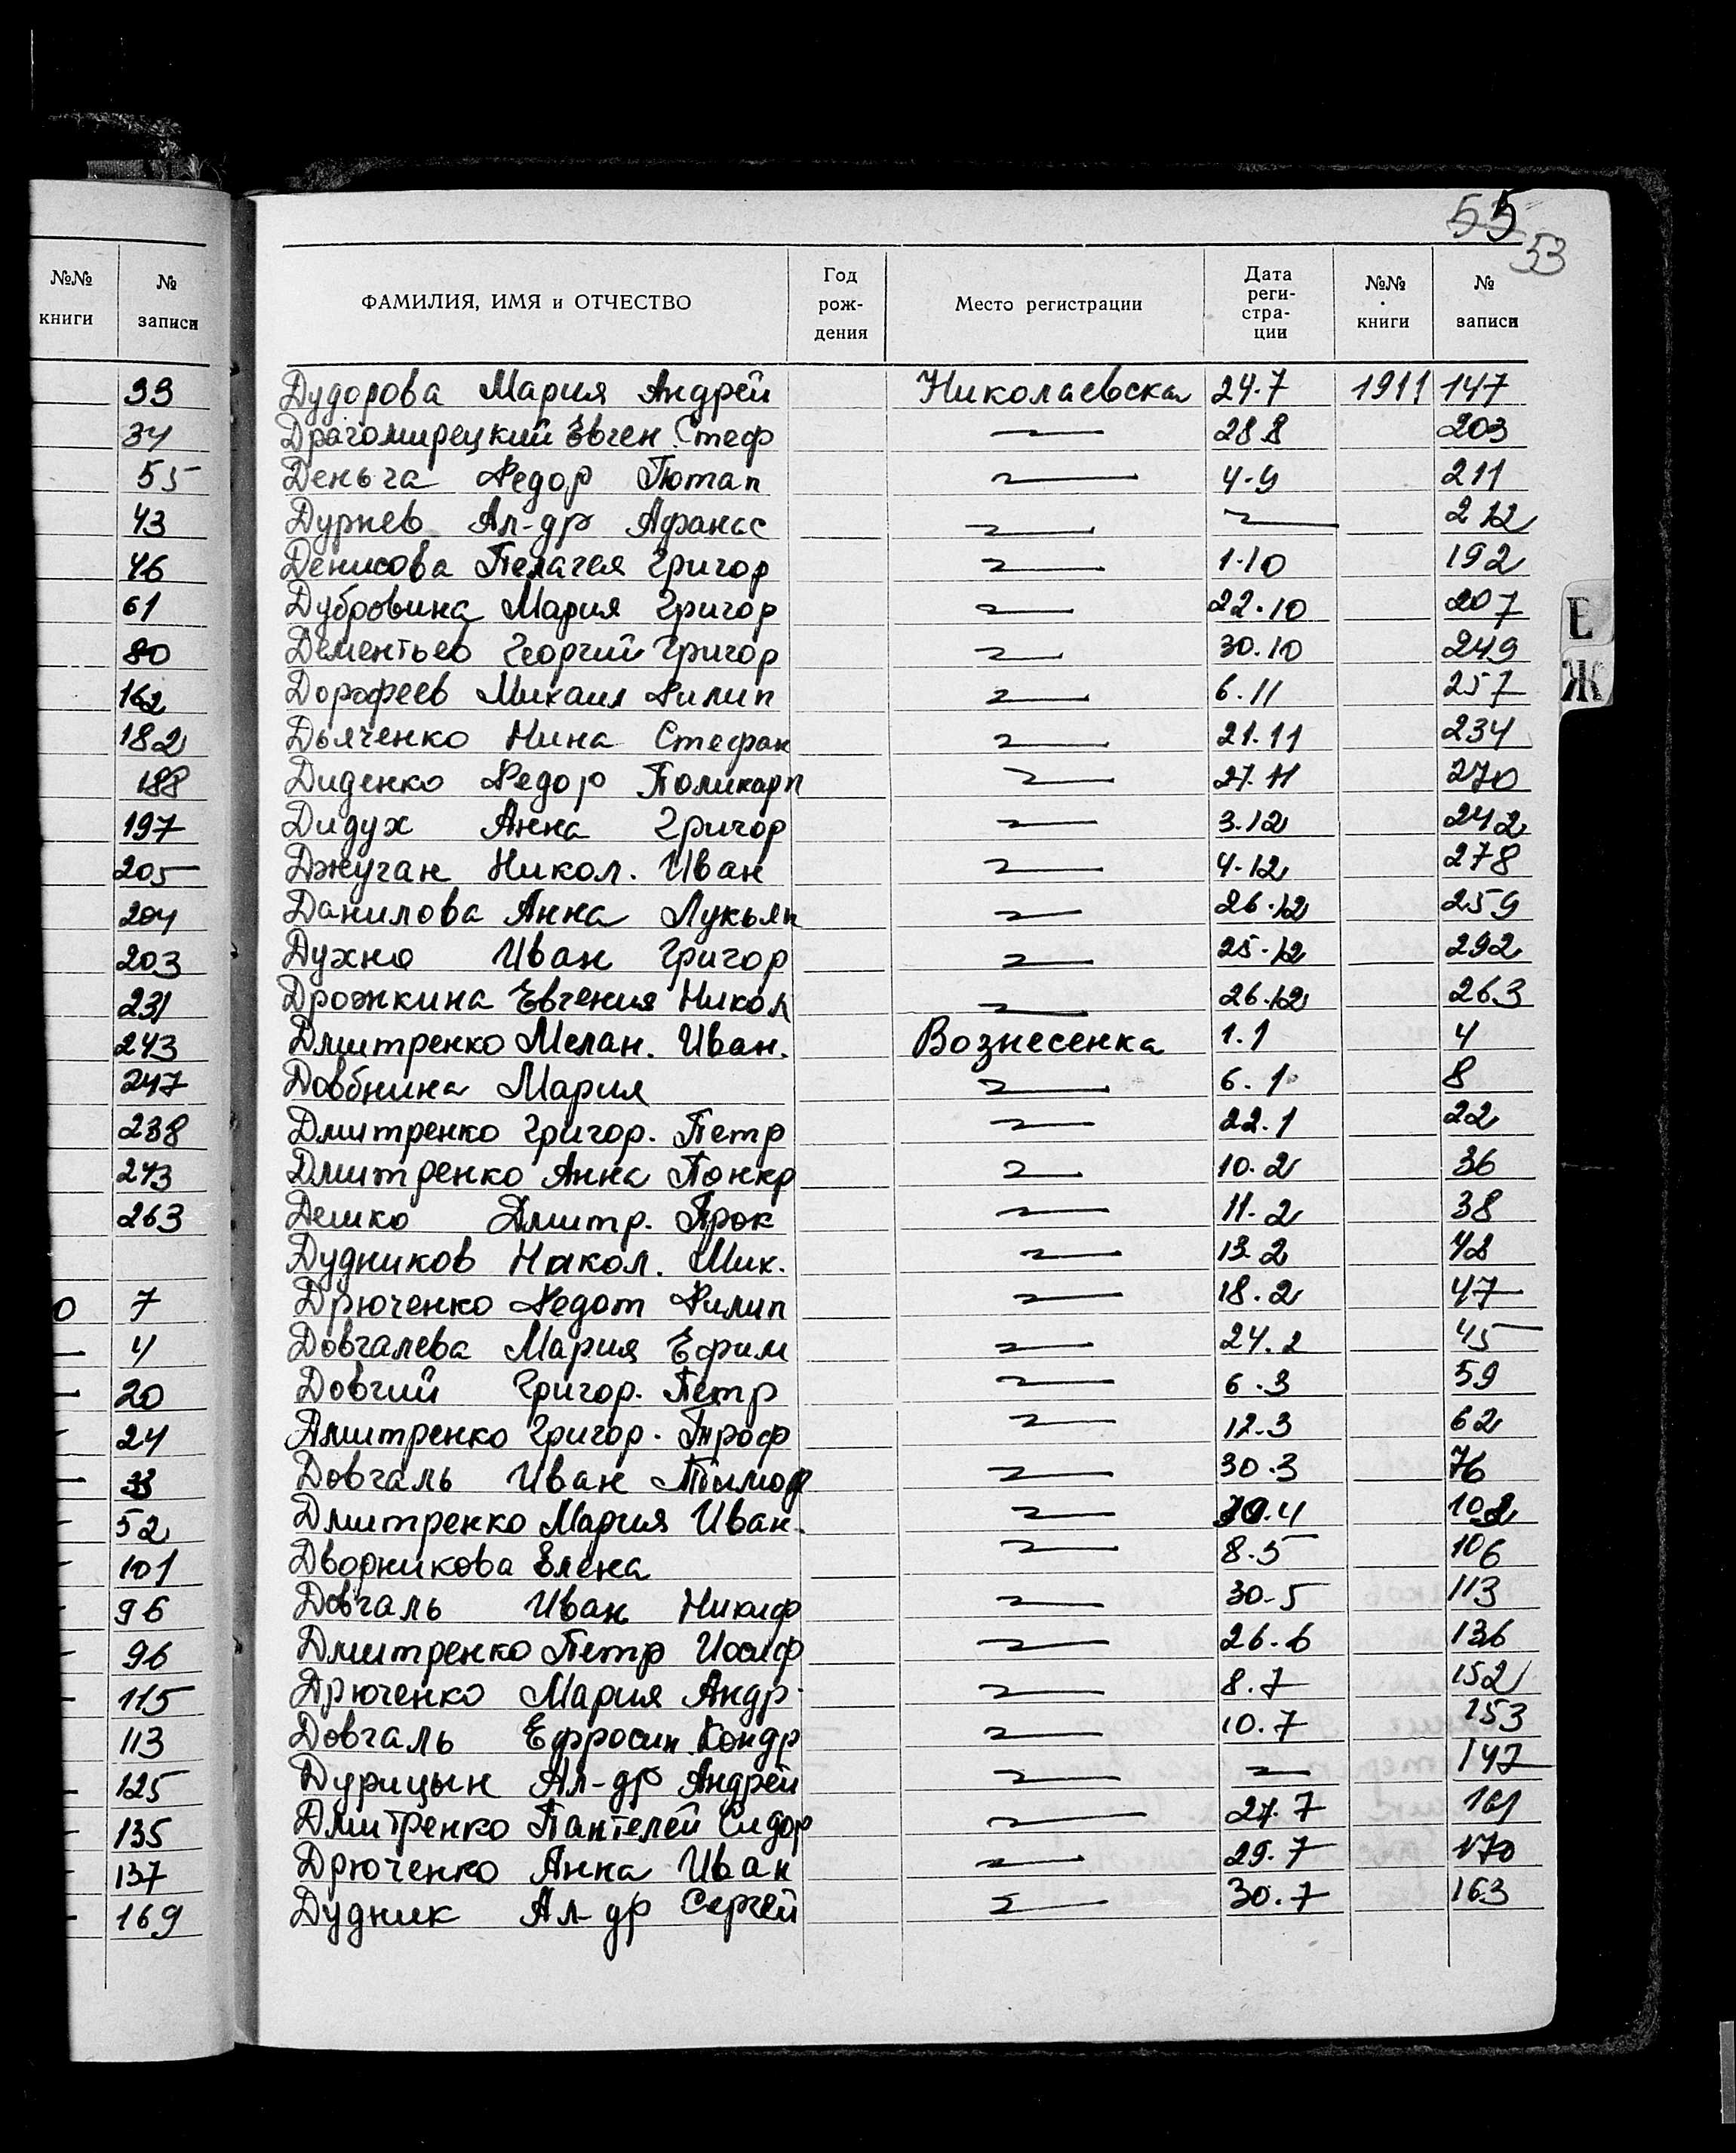 55
53
№№ книги № записи
ФАМИЛИЯ, ИМЯ и ОТЧЕСТВО Год рождения Место регистрации Дата регистрации №№ книги № записи
99
34
55
43
46
61
80
162
182
188
197
205
204
203
231
243
247
238
243
263
0 7
4
20
24
33
52
101
96
96
115
113
125
135
137
169
Дудорова Мария Андрей Николаевская 24.7 1911 147
Драгомирецкий Евген. Стеф 28.8 203
Деньга Федор Потап 4.9 211
Дурнев Ал-др Афанас 212
Денисова Пелагея Григор 1.10 192
Дубровина Мария Григор 22.10 207
Дементьев Георгий Григор 30.10 249
Дорофеев Михаил Филип 6.11 257
Дьяченко Нина Стефан 21.11 234
Диденко Федор Поликарп 27.11 270
Дидух Анна Григор 3.12 242
Джуган Никол. Иван 4.12 278
Данилова Анна Лукьян 26.12 259
Духно Иван Григор 25.12 292
Дрожкина Евгения Никол 26.12 263
Дмитренко Мелан. Иван. Вознесенка 1.1 4
Довбнина Мария 6.1 8
Дмитренко Григор. Петр 22.1 22
Дмитренко Анна Понкр 10.2 36
Дешко Дмитр. Прок 11.2 38
Дудников Никол. Мих. 13.2 42
Дрюченко Федот Филип 18.2 47
Довгалева Мария Ефим 24.2 45
Довгий Григор. Петр 6.3 59
Дмитренко Григор. Троф 12.3 62
Довгаль Иван Тимоф 30.3 76
Дмитренко Мария Иван. 30.4 102
Дворникова Елена 8.5 106
Довгаль Иван Никиф 30.5 113
Дмитренко Петр Иосиф 26.6 136
Дрюченко Мария Андр. 8.7 152
Довгаль Ефросин. Кондр 10.7 153
Дурицын Ал-др Андрей 147
Дмитренко Пантелей Сидор 27.7 161
Дрюченко Анна Иван 29.7 170
Дудник Ал-др Сергей 30.7 163
Е
Ж